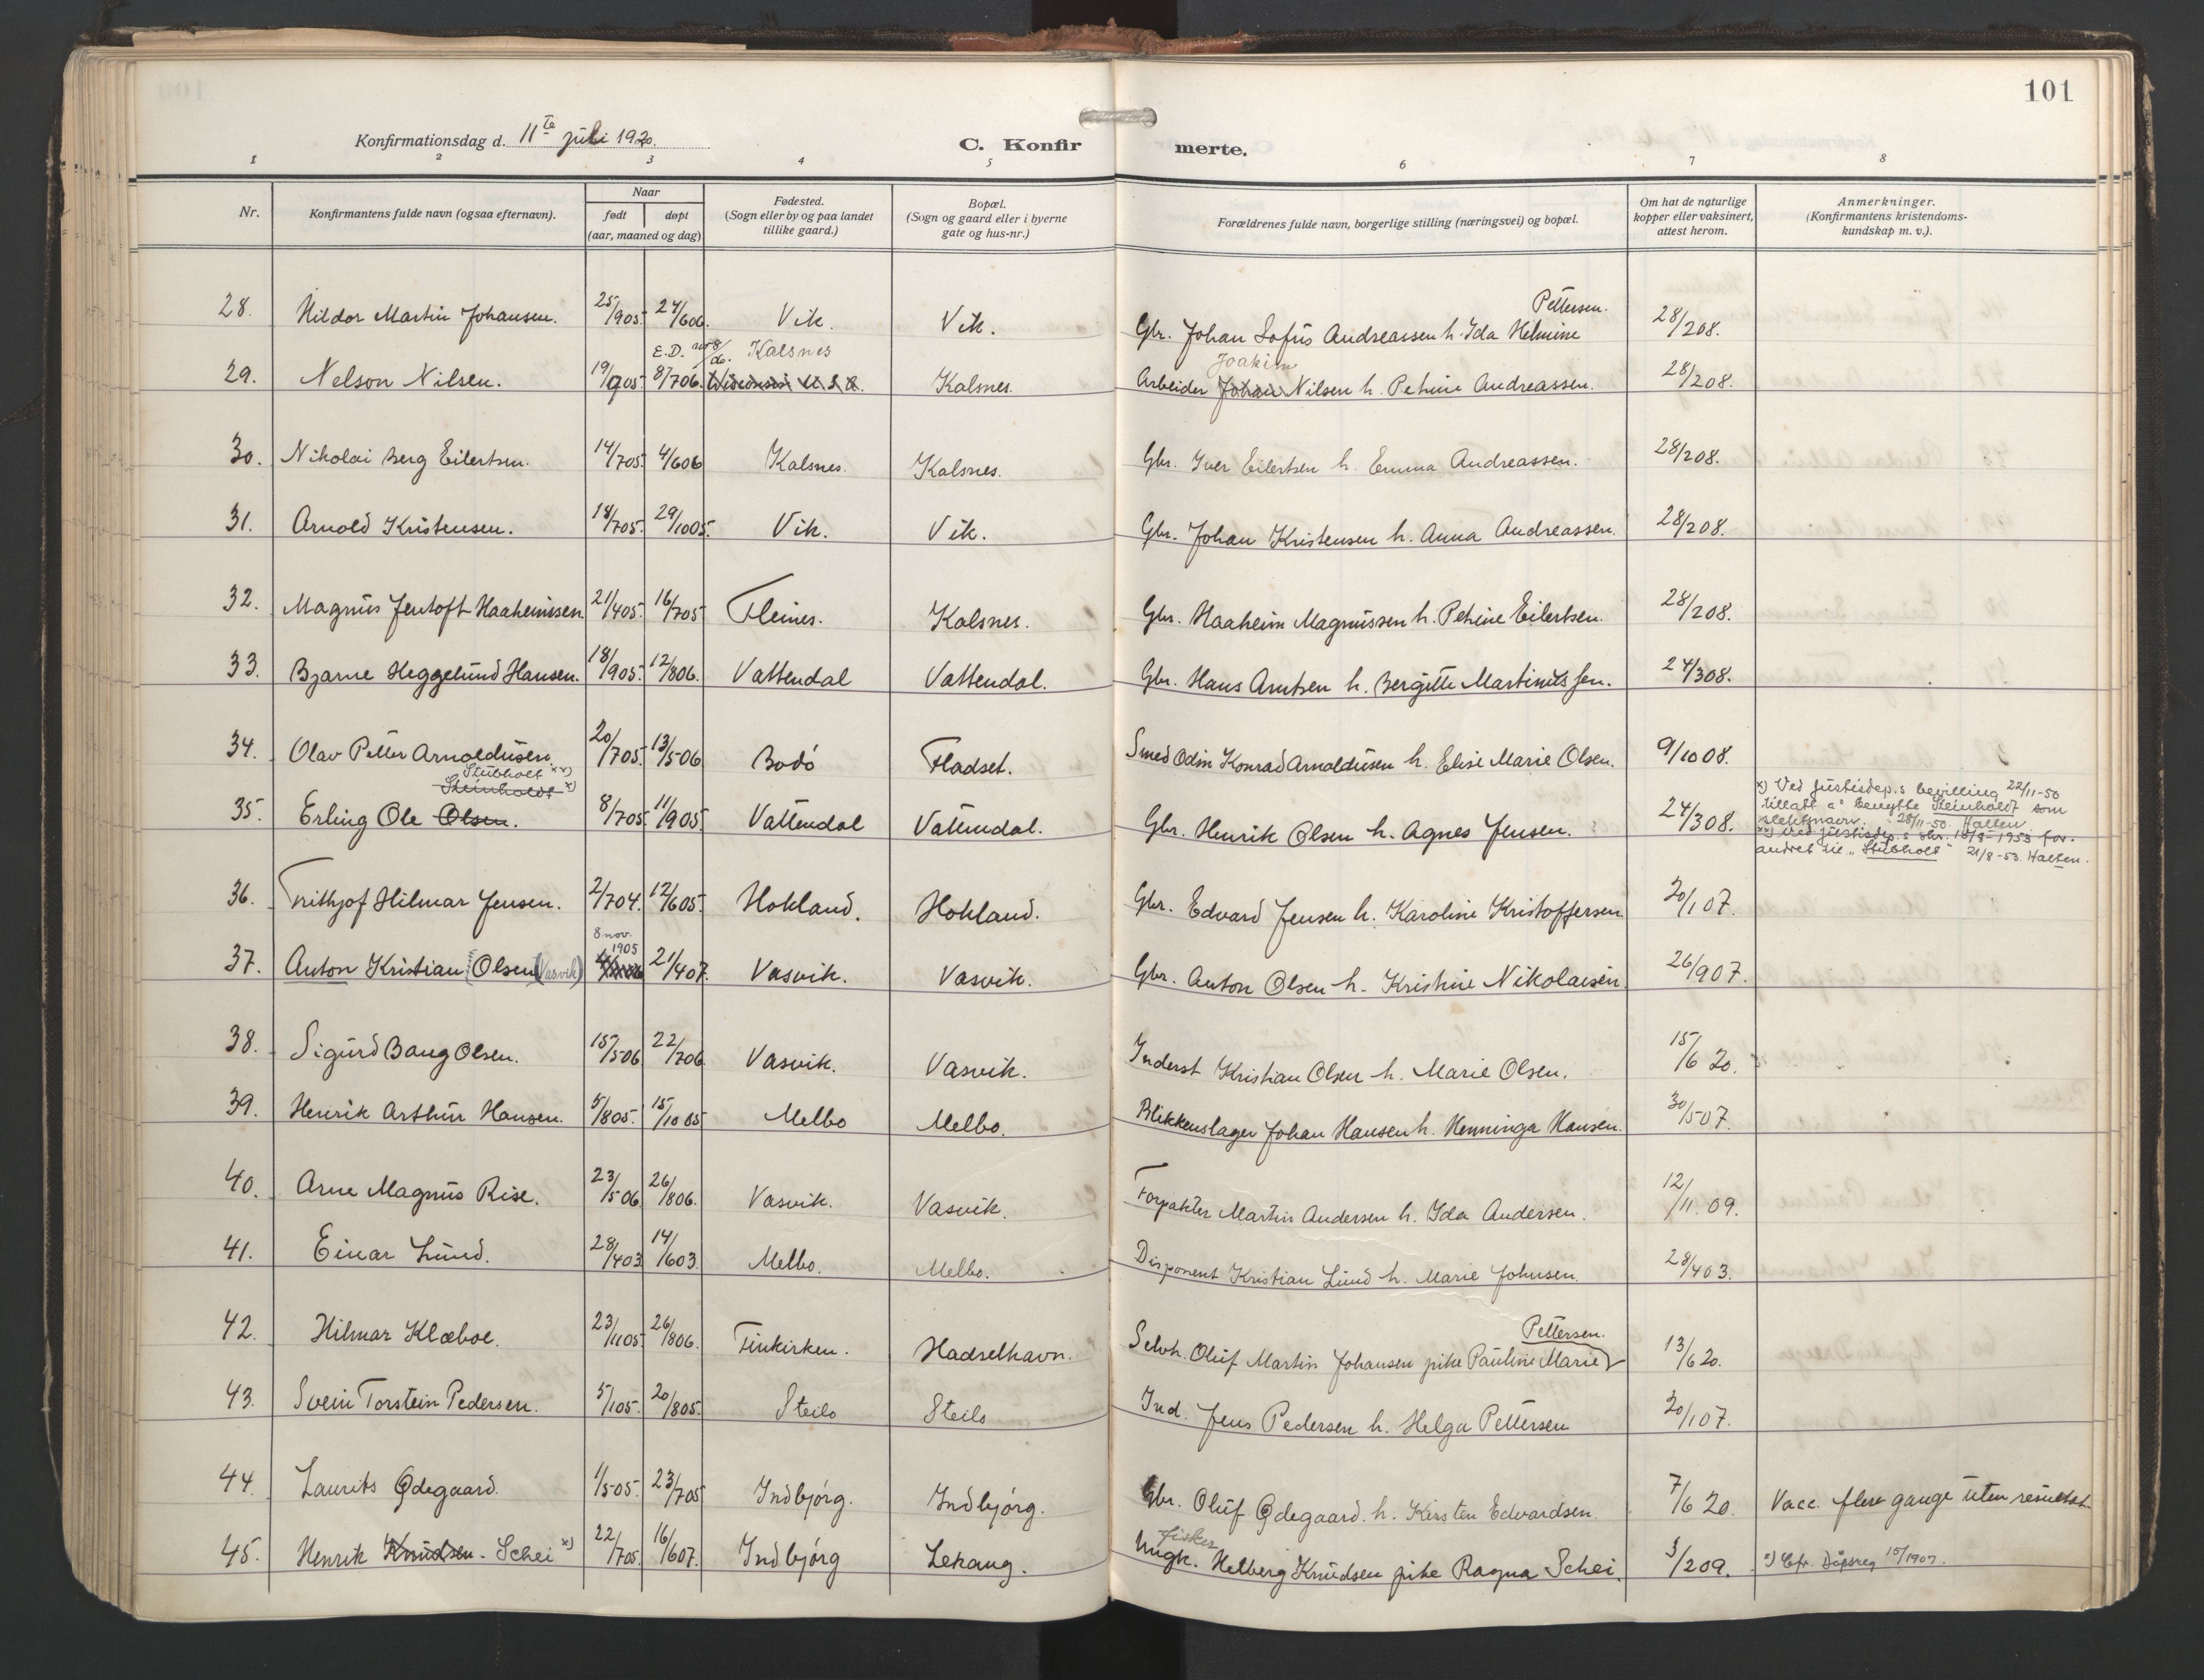 101
Konfirmationsdag d. 11te juli 1920.
C. Konfir merte.
1 2 3 4 5 6 7 8
Nr. Konfirmantens fulde navn (ogsaa efternavn). Naar født døpt (aar, maaned og dag) Fødested. (Sogn eller by og paa landet tillike gaard.) Bopæl. (Sogn og gaard eller i byerne gate og hus-nr.) Forældrenes fulde navn, borgerlige stilling (næringsvei) og bopæl. Om hat de naturlige kopper eller vaksinert, attest herom. Anmerkninger. (Konfirmantens kristendoms-kundskap m. v.).
Pettersen.
28. Hildor Martin Johansen. 25/905. 24/606. Vik. Vik. Gbr. Johan Sofus Andreassen h. Ida Helmine 28/208.
E.D. nr 8/06. Kalsnes Joakim
29. Nelson Nilsen. 19/905. 8/706. Wisconsin U.S.A. Kalsnes. Arbeider Johan Nilsen h. Petrine Andreassen. 28/208.
30. Nikolai Berg Eilertsen. 14/705. 4/606 Kalsnes. Kalsnes. Gbr. Iver Eilertsen h. Emma Andreassen. 28/208.
31. Arnold Kristensen. 18/705. 29/1005. Vik. Vik. Gbr. Johan Kristensen h. Anna Andreassen. 28/208.
32. Magnus Jentoft Haaheimssen. 21/405. 16/705 Fleines. Kalsnes. Gbr. Haaheim Magnussen h. Petrine Eilertsen. 28/208.
33. Bjarne Heggelund Hansen. 18/905. 12/806. Vattendal Vattendal. Gbr. Hans Arntsen h. Bergitte Martinussen. 24/308.
34. Olav Petter Arnoldusen. 20/705. 13/506 Bodö Fladset. Smed Odin Konrad Arnoldusen h. Elise Marie Olsen. 9/10 08.
Stubholt xx)
Steinholdt x)
35. Erling Ole Olsen. 8/705. 11/905. Vattendal Vattendal. Gbr. Henrik Olsen h. Agnes Jensen. 24/308.
x) Ved justisdep.s bevilling 22/11-50
tillatt a° benytte Steinholdt som
slektsnavn. 28/11-50. Hatten
xx) Ved justisdep.s skr. 18/8-1953 for-
andret til "Stubholt" 21/8-53. Hatten.
36. Frithjof Hilmar Jensen. 2/704. 12/605. Hokland. Hokland. Gbr. Edvard Jensen h. Karoline Kristoffersen 20/107.
8 nov. 1905
37. Anton Kristian Olsen (Vasvik) 21/407. Vasvik. Vasvik. Gbr. Anton Olsen h. Kristine Nikolaisen. 26/907.
38. Sigurd Baug Olsen. 15/506 22/706. Vasvik. Vasvik. Inderst Kristian Olsen h. Marie Olsen. 15/6 20.
39. Henrik Arthur Hansen. 5/805. 15/1005 Melbo Melbo. Blikkenslager Johan Hansen h. Henninga Hansen. 30/507.
40. Arne Magnus Rise. 23/506 26/806. Vasvik. Vasvik. Forpakter Martin Andersen h. Ida Andersen. 12/11.09.
41. Einar Lund. 28/403 14/603. Melbo. Melbo. Disponent Kristian Lund h. Marie Johnsen. 28/403.
Pettersen.
42. Hilmar Klæboe. 23/1105. 26/806. Finkirken. Hadselhavn. Selvh. Oluf Martin Johansen pike Pauline Marie 13/6 20.
43. Svein Torstein Pedersen. 5/105. 20/805. Steilo Steilo Ind. Jens Pedersen h. Helga Pettersen 20/107.
44. Laurits Ødegaard. 1/505. 23/705 Indbjörg. Indbjörg. Gbr. Oluf Ødegaard. h. Kirsten Edvardsen. 7/6 20 Vacc. flere gange uten resultat.
fisker
45. Henrik Knudsen. Schei x) 22/705. 16/607. Indbjörg Lekang. Ungk. Helberg Knudsen pike Ragna Schei. 3/209. x) Cfr. Dåpsreg 15/1907.